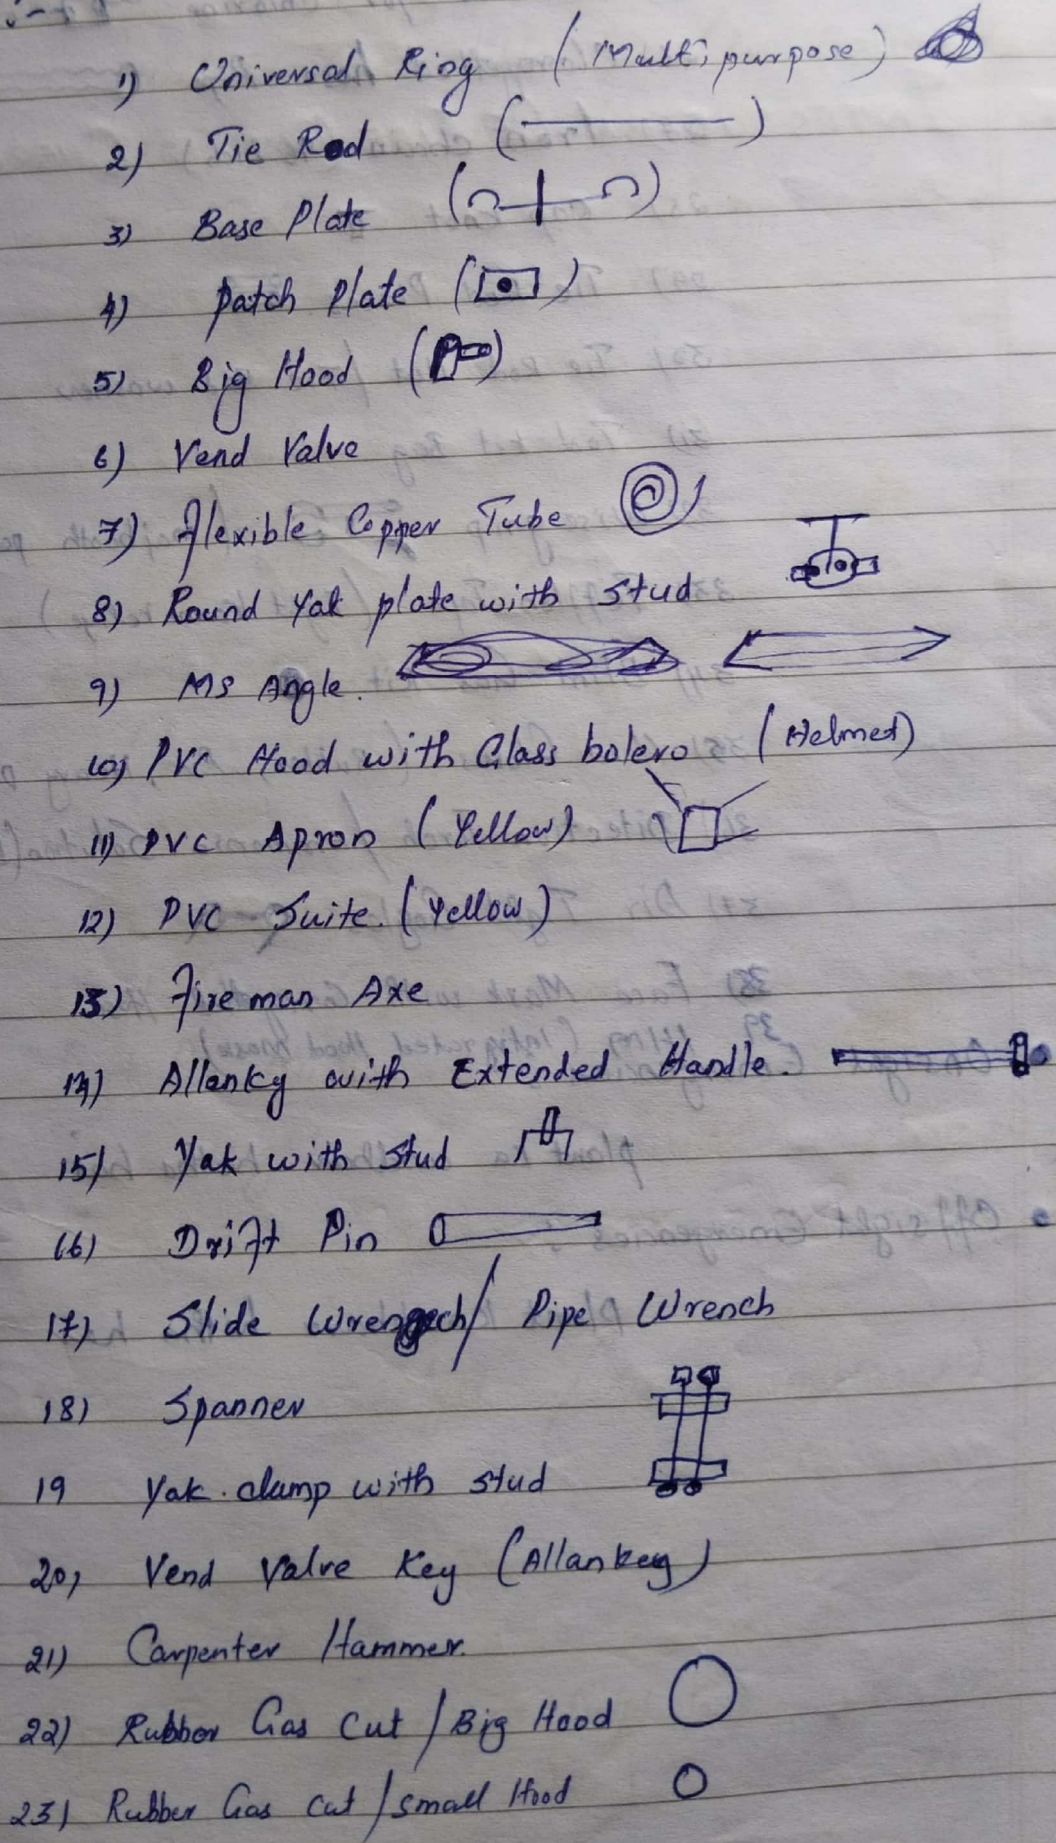 1) Universal Ring (Multipurpose)
2) Tie Rod
3) Base Plate
4) Patch Plate
5) Big Hood
6) Vend Valve
7) Flexible Copper Tube
8) Round Yak plate with stud
9) MS Angle.
10) PVC Hood with Glass bolero (Helmed)
11) PVC Apron (Yellow)
12) PVC Suite. (Yellow)
13) Fire man Axe
14) Allanky with Extended Handle.
15) Yak with stud
16) Drift Pin
17) Slide / Pipe Wrench
18) Spanner
19 Yak clamp with stud
20) Vend Valve Key (Allankey)
21) Carpenter Hammer.
22) Rubber Gas Cut / Big Hood
23) Rubber Gas cut / small Hood